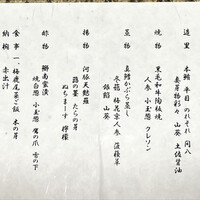 造里 本鮪 平目 のれそれ 間八
妻芽物彩々 山葵 土佐醤油
焼物 黒毛和牛陶板焼
人参 小玉葱 クレソン
蒸物 真鯛かぶら蒸し
冬菇 梅花京人参 菠薐草
銀餡 山葵
揚物 河豚天麩羅
蕗の薹 たらの芽
ぬちまーす 檸檬
酢物
焼白葱 小玉葱 鷹の爪 雪の下
食事 一、梅穂尾菜ご飯 木の芽
一、赤出汁
納椀